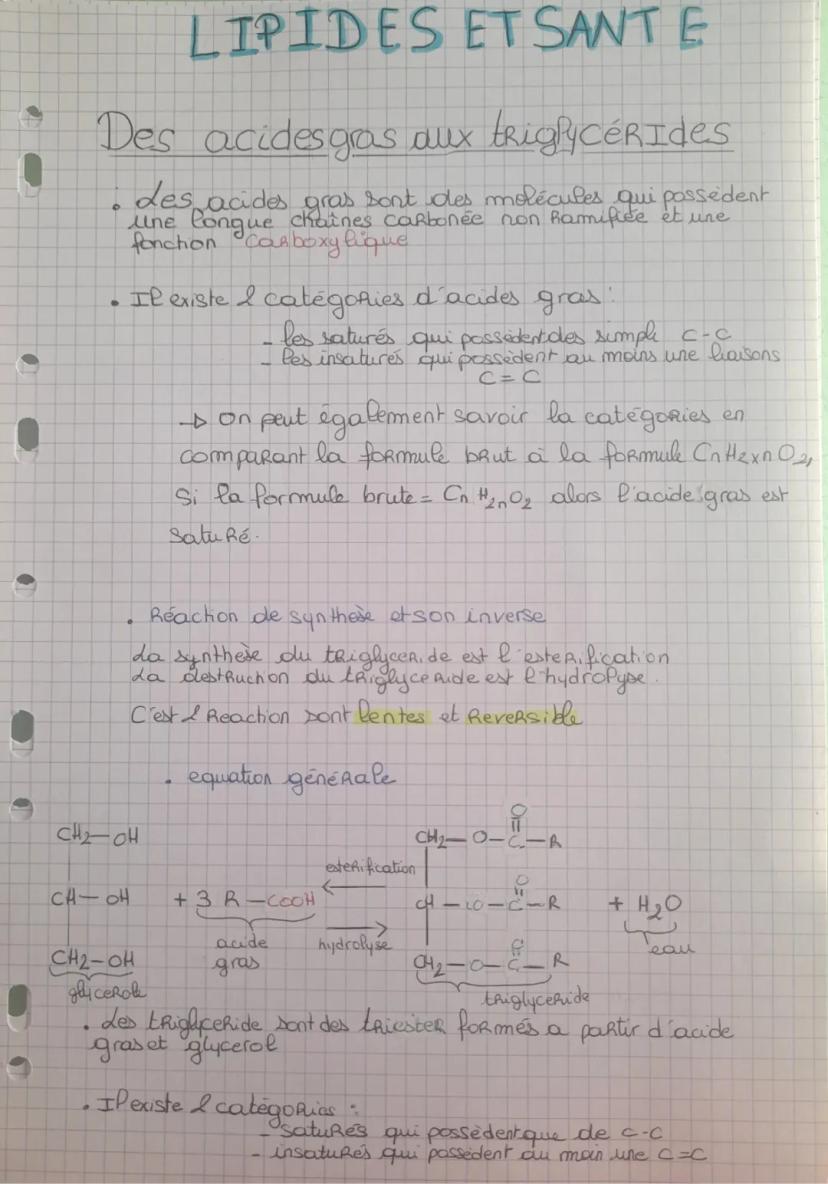 LIPIDES ET SANTE
Des acides gras aux triglycérides
• Les acides gras sont des molécules qui possèdent
une longue chaînes carbonée non ramifiée et une
fonction carboxylique
• Il existe 2 catégories d'acides gras :
- les saturés qui possèdent des simple C-C
- les insaturés qui possèdent au moins une liaisons
C=C
→ On peut également savoir la catégories en
comparant la formule brut à la formule CnH2xnO2,
Si la formule brute = CnH2nO2 alors l'acide gras est
saturé.
• Réaction de synthèse et son inverse
La synthèse du triglyceride est l'esterification
La destruction du triglyceride est l'hydrolyse.
C'est 2 Reaction sont lentes et Reversible
• equation générale
CH2—OH
CH—OH + 3 R—COOH
CH2—OH
glycerole
acide
gras
esterification
←
→
hydrolyse
O
CH2—O—C—R
O
CH—O—C—R + H2O
O
CH2—O—C—R
triglyceride
eau
• Les triglyceride sont des triester formés a partir d'acide
gras et glycerol
• Il existe 2 catégories :
- saturés qui possèdent que de C-C
- insaturés qui possèdent au moin une C=C